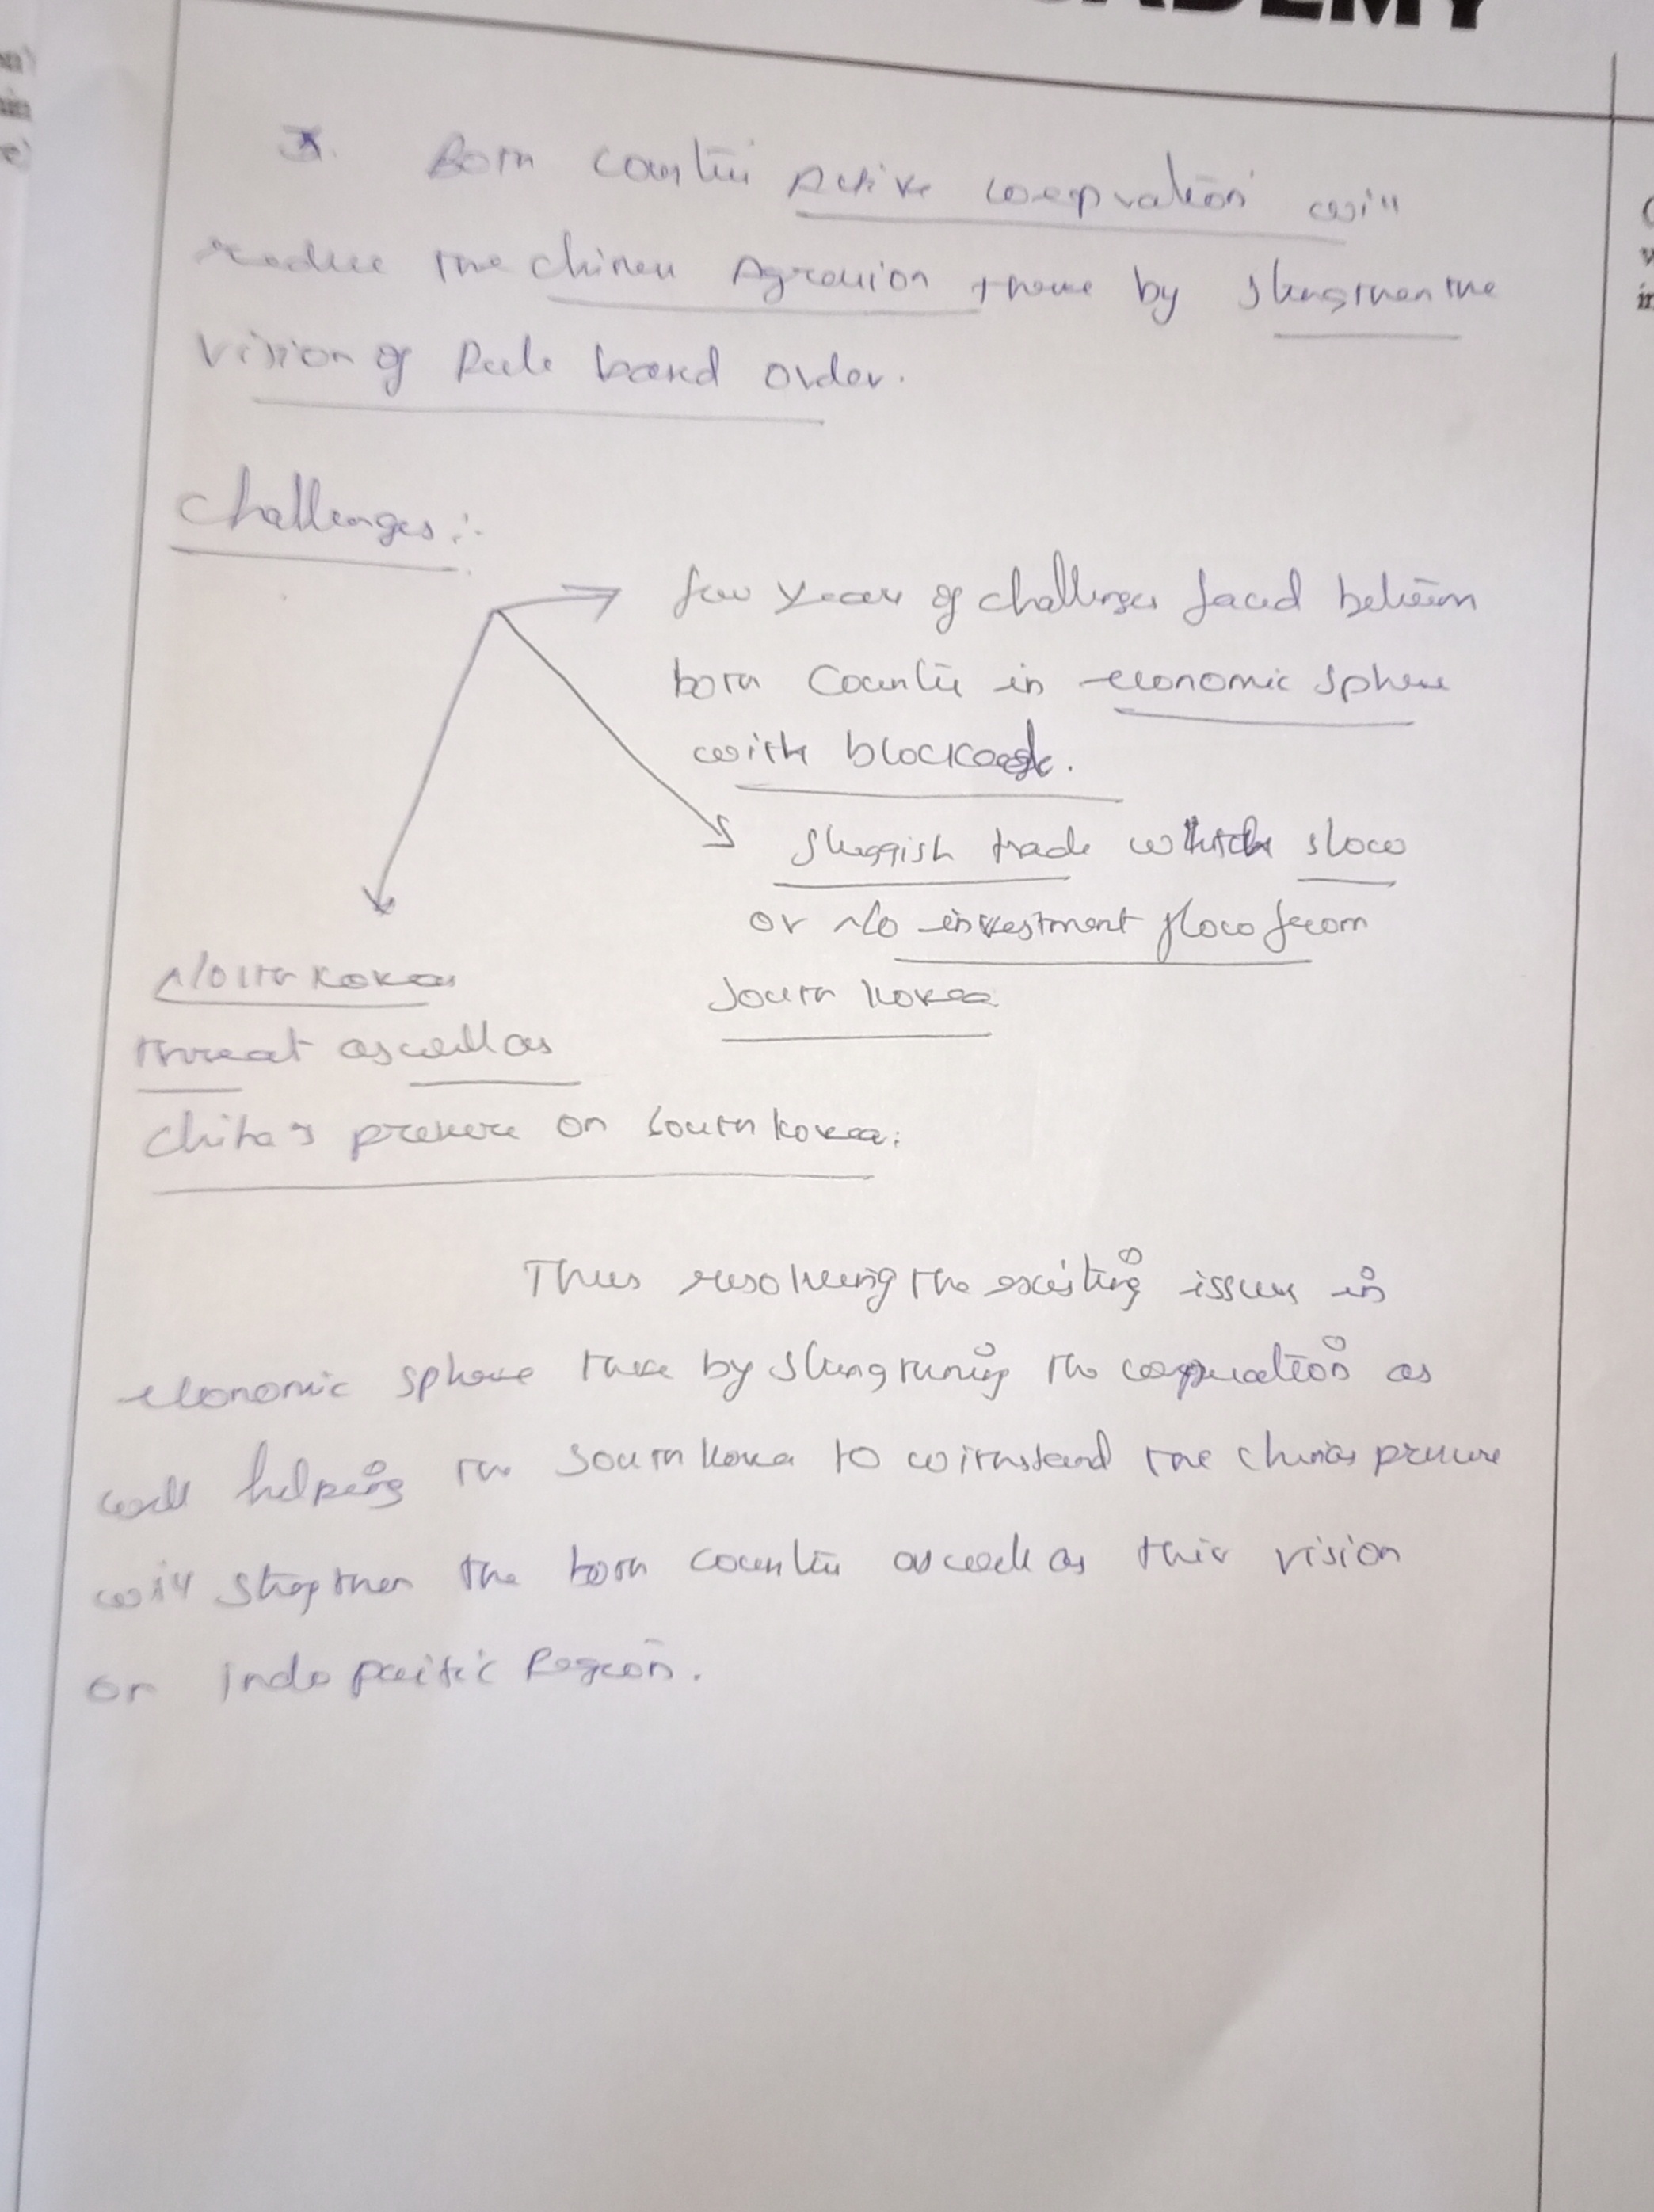 ADEMY
Both countries Active cooperation will
reduce the chinese Agression there by strengthen the
vision of Rule based order.
Challenges :-
few years of challenges faced between
both Countries in economic sphere
with blockade.
sluggish trade which slow
or No investment flow from
South Korea
North Korea
threat as well as
China's pressure on South Korea.
Thus resolving the existing issues in
economic sphere there by strengthening the cooperation as
well helping the South Korea to withstand the China's pressure
will strengthen the both countries as well as their vision
on indo pacific Region.